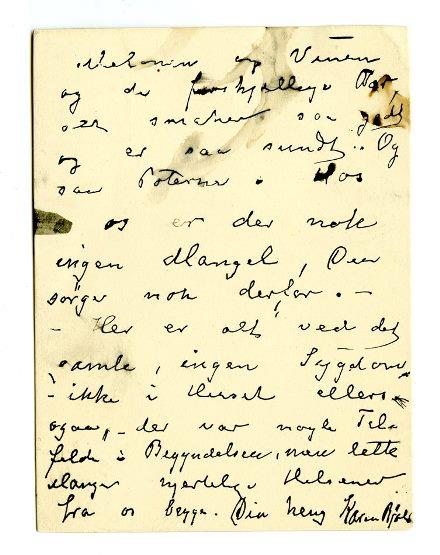 og Vinen
og de forskjellige
smaker saa godt
og er saa sundt.. Og
saa Poterne. Hos
os er der nok
ingen Mangel, Deer
sörger nok derfor. –
– Her er alt ved det
samle, ingen Sygdom
– ikke i Huset ellers
ogaa, – der var nogle Til-
felde i Begyndelsen, men lette
Mange hjertelige Helsener
fra os begge. Din heng Karen